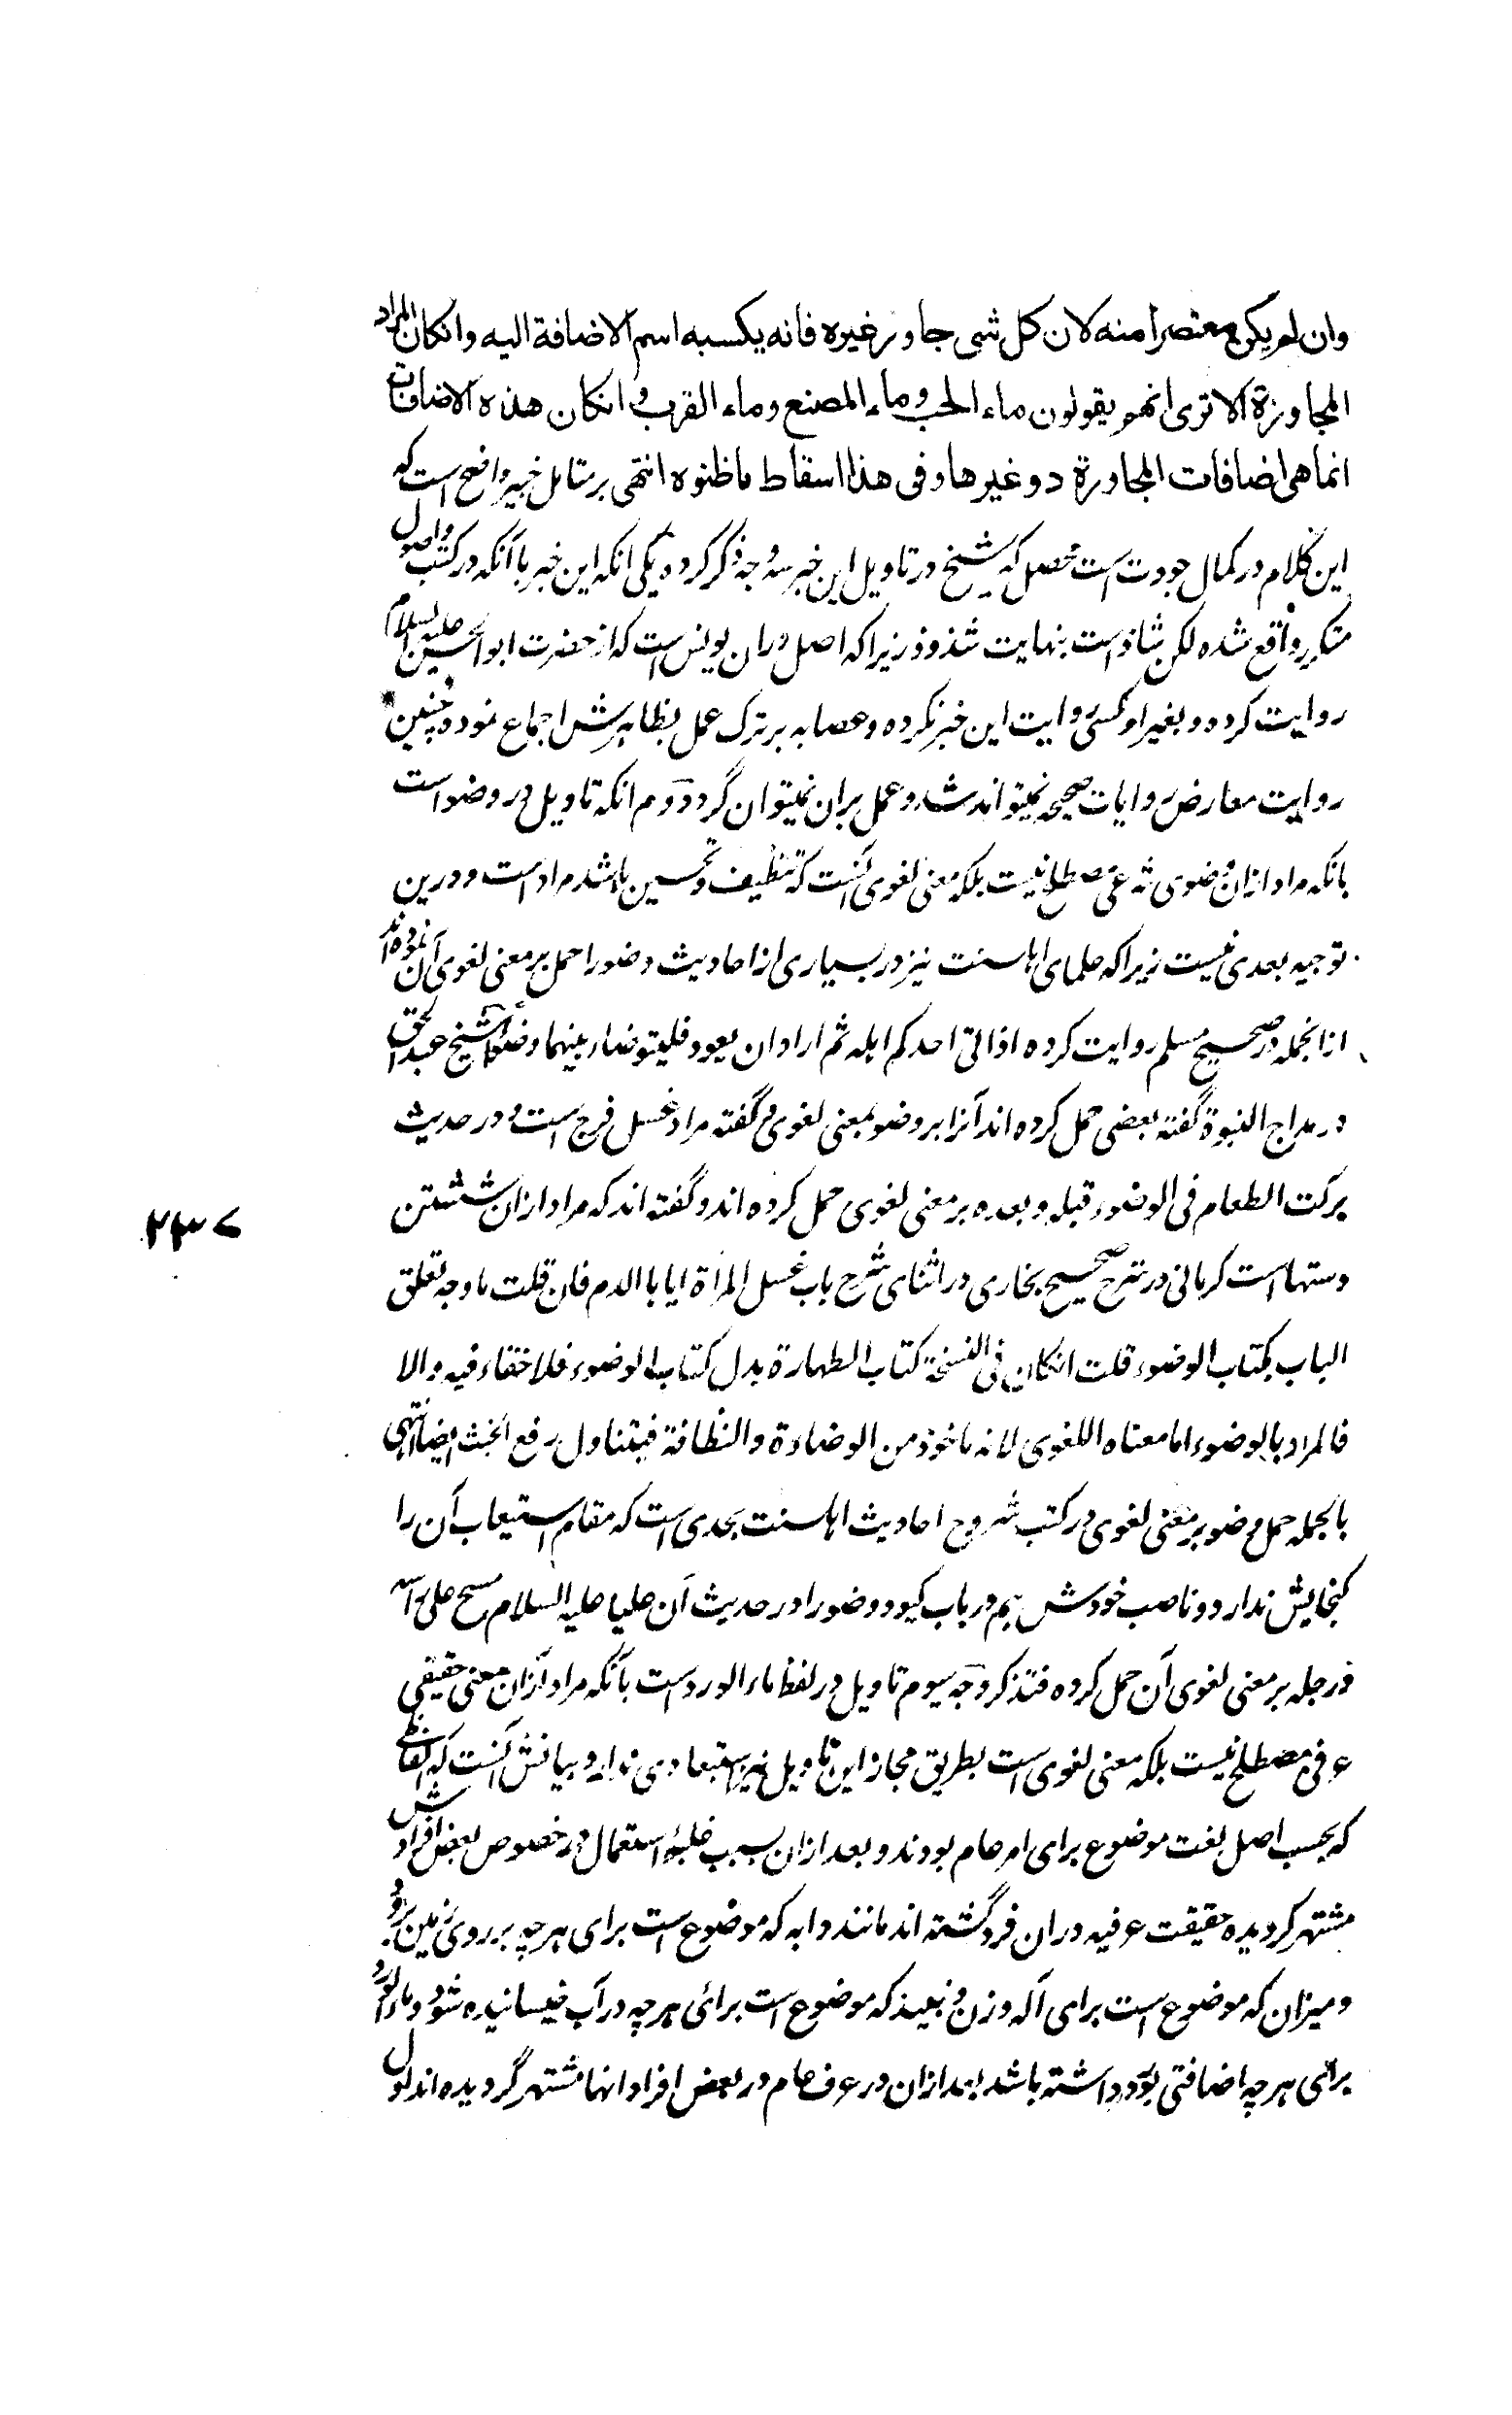 وان لم يكن معتصرا منه لان كل شى جاور غيره فانه يكسبه اسم الاضافة اليه وانكان المراد
المجاورة الا ترى انهم يقولون ماء الحب وماء المصنع وماء القرب و انكان هذه الاضافات
انما هى اضافات المجاورة دو غيرها وفى هذا اسقاط ما ظنوه انتهى بر متامل خبير واضح است كه
اين كلام در كمال جودت است محصل كه شيخ در تاويل اين خبر سه وجه ذكر كرده يكى انكه اين خبر با آنكه در كتب واصول
متكرر واقع شده لكن شاذ است بنهايت شذوذ زيرا كه اصل دران يونس است كه از حضرت ابو الحسن عليه السلام
روايت كرده و بغير او كسى روايت اين خبر نكرده و عصابه بر ترك عمل بظاهرش اجماع نموده چنين
روايت معارض روايات صحيحه نميتواند شد و عمل بران نميتوان كرد دوم انكه تاويل در وضو است
بانكه مراد ازان وضوى شرعى مصطلح نيست بلكه معنى لغوى آنست كه تنظيف و تحسين باشد مراد است و درين
توجيه بعدى نيست زيرا كه علماى اهلسنت نيز در بسيارى از احاديث وضو را حمل بر معنى لغوى آن نموده اند
از انجمله در صحيح مسلم روايت كرده اذا اتى احدكم اهله ثم اراد ان يعود فليتوضا بينهما وضوءا شيخ عبد الحق
در مدارج النبوة گفته بعضى حمل كرده اند آنرا بر وضو بمعنى لغوى و گفته مراد غسل فرج است و در حديث
بركت الطعام فى الوضوء قبله و بعده بر معنى لغوى حمل كرده اند و گفته اند كه مراد ازان شستن
دستها است كرمانى در شرح صحيح بخارى در اثناى شرح باب غسل المراة اباها الدم فان قلت ما وجه تعلق
الباب بكتاب الوضوء قلت انكان فى النسخة كتاب الطهارة بدل كتاب الوضوء فلا خفاء فيه والا
فالمراد بالوضوء اما معناه اللغوى لانه ماخوذ من الوضاءة والنظافة فيتناول رفع الخبث ايضا انتهى
بالجمله حمل وضو بر معنى لغوى در كتب شروح احاديث اهلسنت بحدى است كه مقام استيعاب آن را
گنجايش ندارد و ناصب خودش هم در باب كيود وضو را در حديث ان عليا عليه السلام مسح على راسه
ورجله بر معنى لغوى آن حمل كرده فتذكر وجه سيوم تاويل در لفظ ماء الورد است بآنكه مراد ازان معنى حقيقى
عرفى مصطلح نيست بلكه معنى لغوى است بطريق مجاز اين تاويل نيز استبعادى ندارد و بيانش آنست كه الفاظى
كه بحسب اصل لغت موضوع براى امر عام بودند و بعد ازان بسبب غلبۀ استعمال در خصوص بعض افرادش
مشتهر گرديده حقيقت عرفيه دران فرد گشته اند مانند دابه كه موضوع است براى هر چه بر روى زمين برود
و ميزان كه موضوع است براى آله وزن و نبيذ كه موضوع است برائى هر چه در آب خيسانيده شود و ماء الورد
براى هر چه اضافتى بورد داشته باشد بعد ازان در عرف عام در بعض افراد انها مشتهر گرديده اند لول
۲۳۷